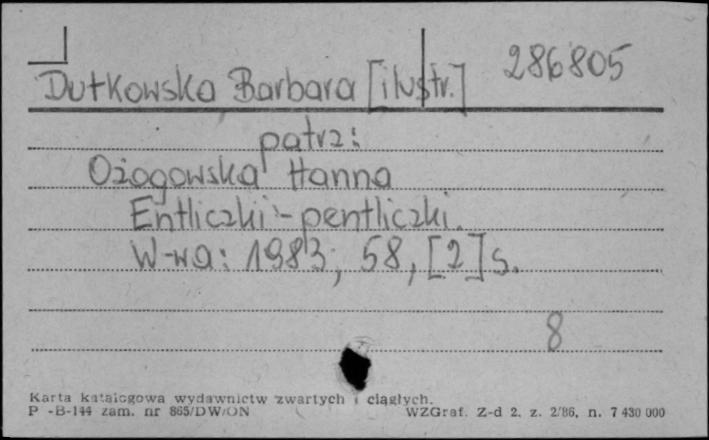 286805
Dutkowska Barbara [ilustr.]
patrz:
Ożogowska Hanna
Entliczki-pentliczki.
W-wa: 1983, 58, [2] s.
8
Karta katalogowa wydawnictw zwartych i ciągłych.
P-B-144 zam. nr 865/DW/ON WZGraf. Z-d 2. z. 2/86, n. 7 430 000